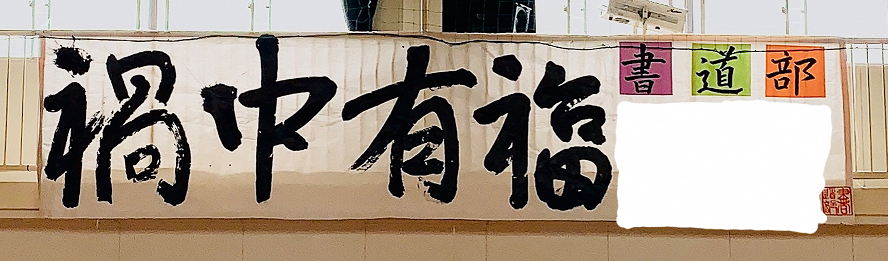 禍中有福
書道部